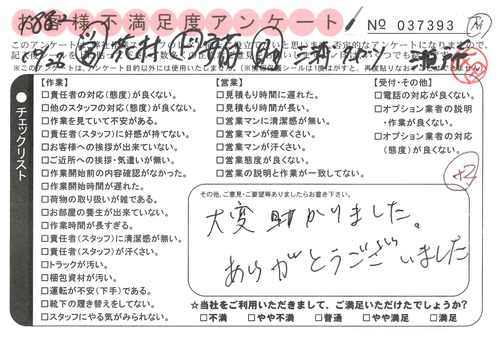 お客様不満足度アンケート
No 037393
チェックリスト
【作業】
□責任者の対応(態度)が良くない。
□他のスタッフの対応(態度)が良くない。
□作業を見ていて不安がある。
□責任者(スタッフ)に好感が持てない。
□お客様への挨拶が出来ていない。
□ご近所への挨拶・気遣いが無い。
□作業開始前の内容確認がなかった。
□作業開始時間が遅れた。
□荷物の取り扱いが雑である。
□お部屋の養生が出来ていない。
□作業時間が長すぎる。
□責任者(スタッフ)に清潔感が無い。
□責任者(スタッフ)が汗くさい。
□トラックが汚い。
□梱包資材が汚い。
□運転が不安(下手)である。
□靴下の履き替えをしてない。
□スタッフにやる気がみられない。
【営業】
□見積もり時間に遅れた。
□見積もり時間が長い。
□営業マンに清潔感が無い。
□営業マンが煙草くさい。
□営業マンが汗くさい。
□営業態度が良くない。
□営業の説明と作業が一致してない。
【受付・その他】
□電話の対応が良くない。
□オプション業者の説明
・作業が良くない。
□オプション業者の対応
(態度)が良くない。
+2
その他、ご意見・ご要望等ありましたらお書き下さい。
大変助かりました。
ありがとうございました
☆当社をご利用いただきまして、ご満足いただけたでしょうか?
□不満 □やや不満 □普通 □やや満足 □満足